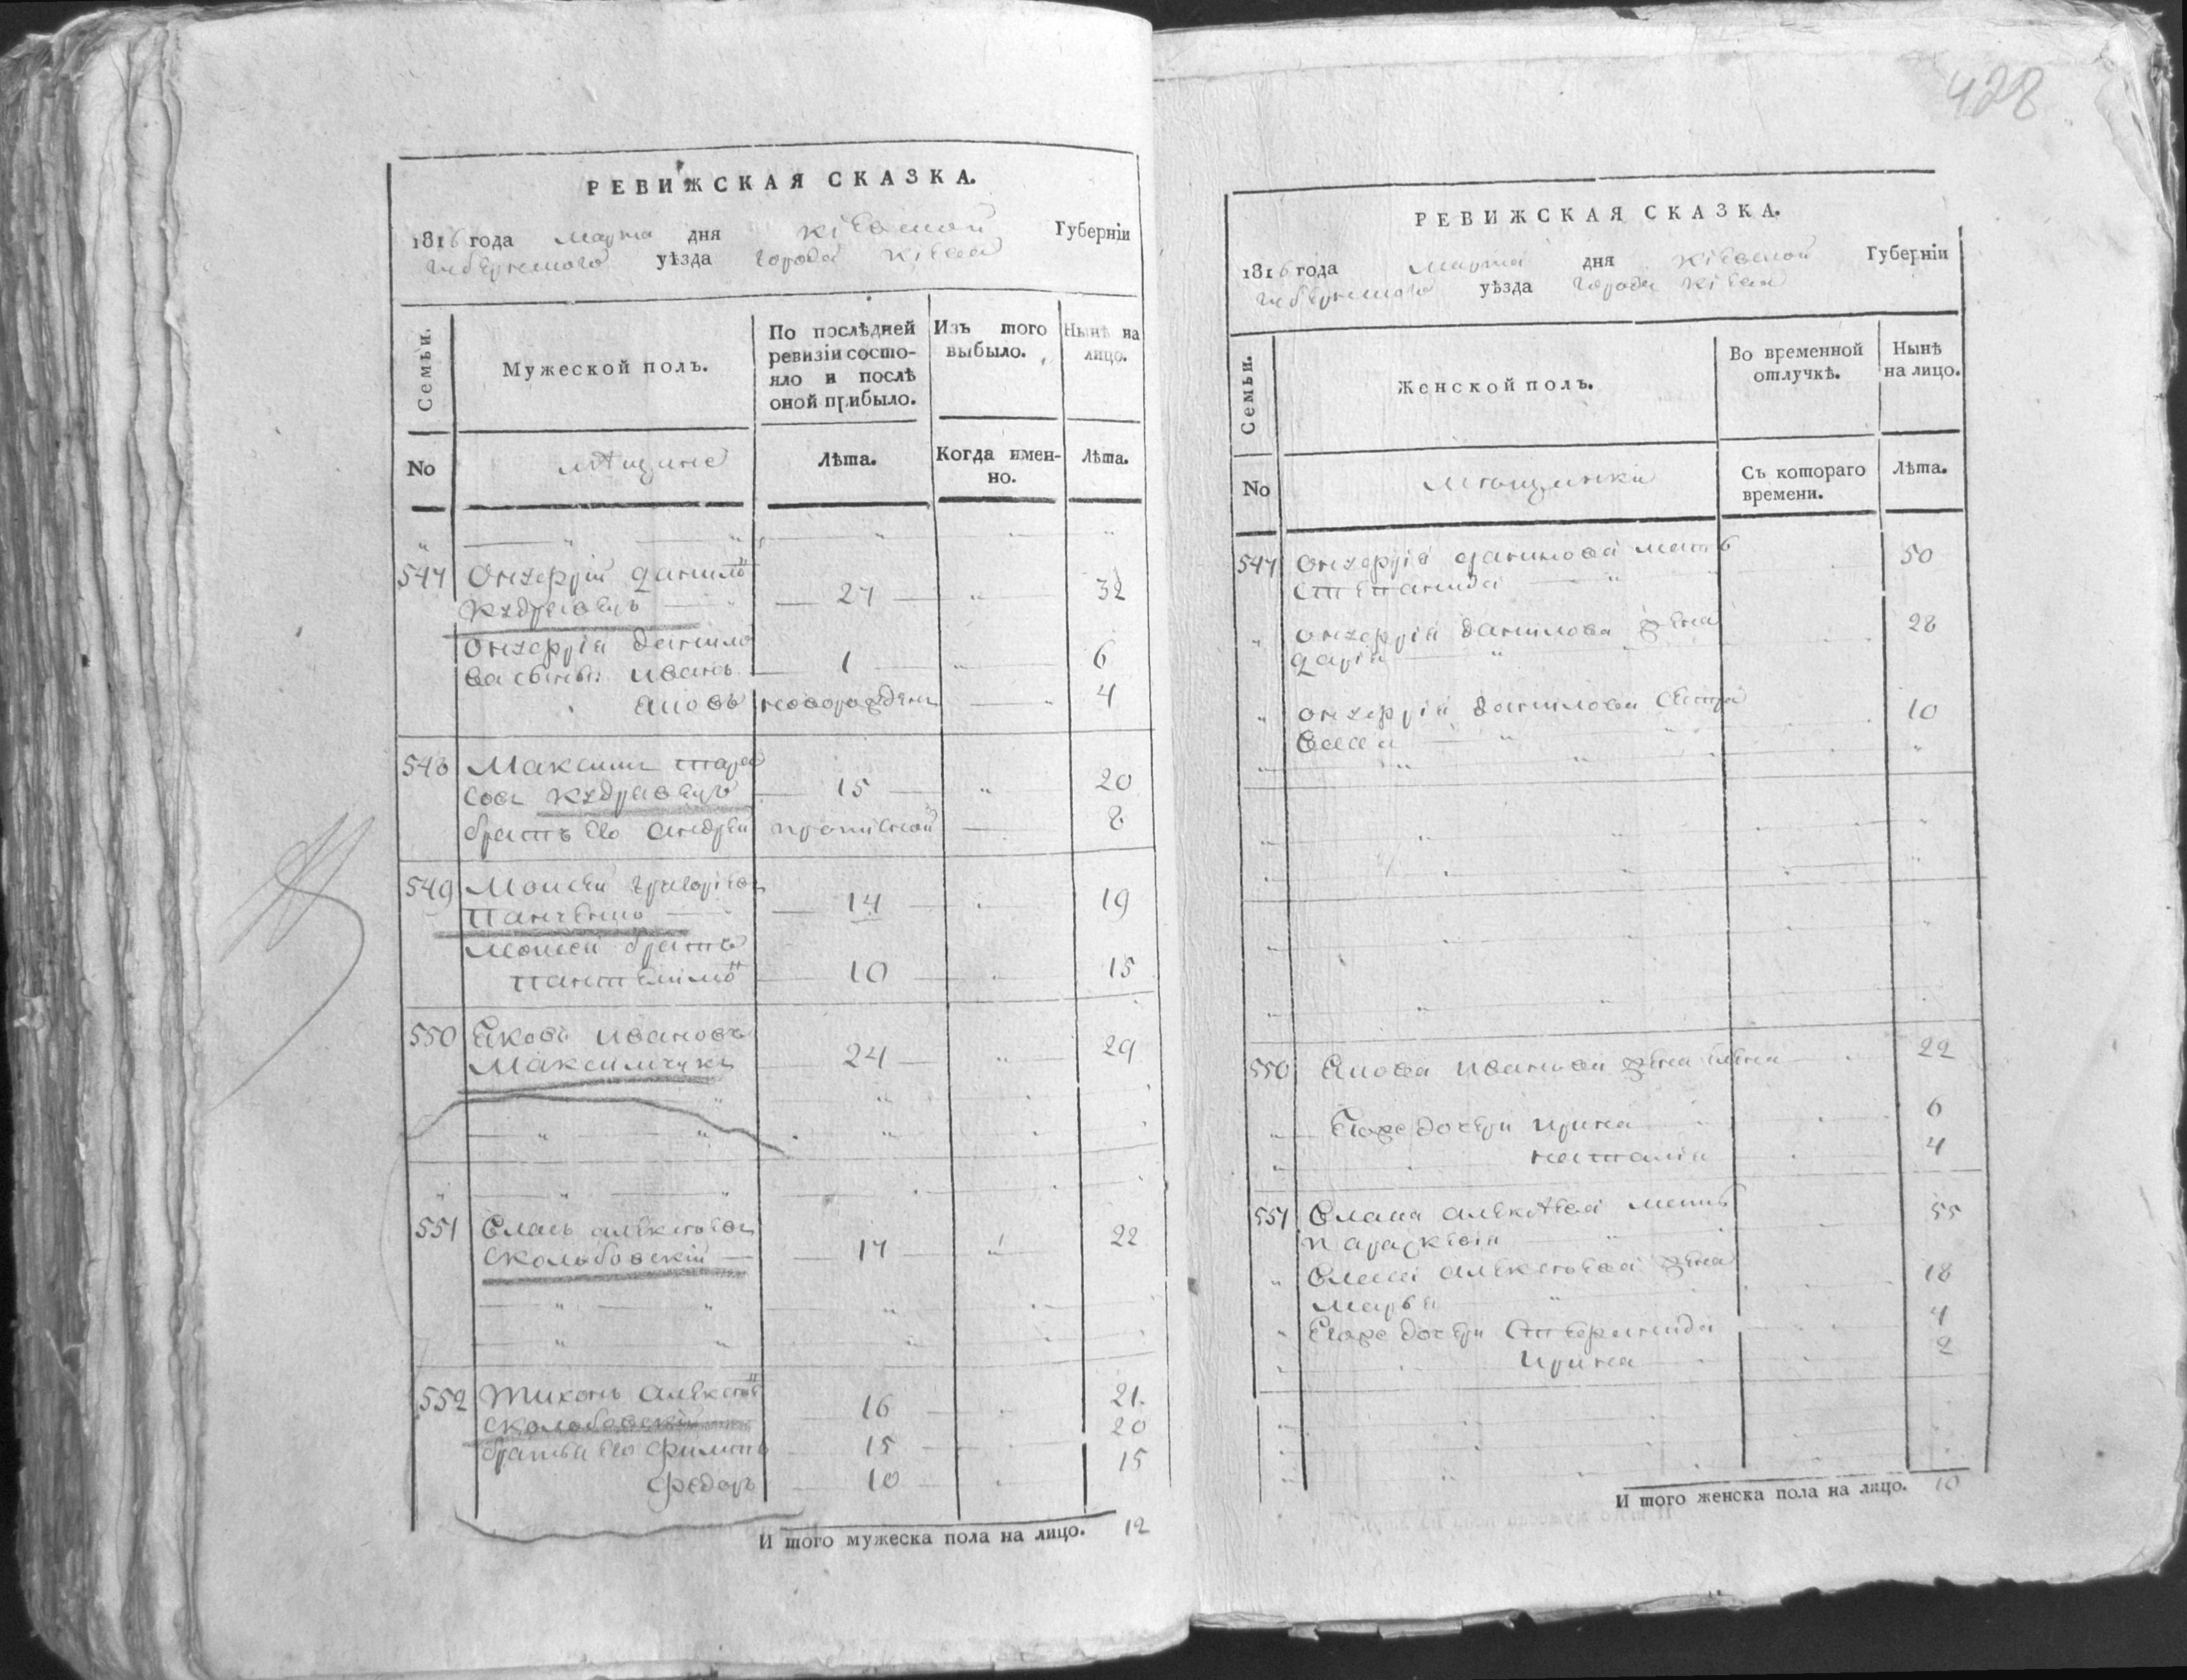 РЕВИЖСКАЯ СКАЗКА.
1816 года марта дня Кіевской Губерніи
губернского уѣзда города Кіева
Семьи.
Мужеской полъ.
По послѣдней ревизіи состояло и послѣ оной прибыло.
Изъ того выбыло.
Нынѣ на лицо.
No
мѣщане
Лѣта.
Когда именно.
Лѣта.
547 Онуфрій данило
кудравецъ 27 32
Онуфрія данило
ва сыны: иванъ 1 6
яковъ новорожденъ 4
548 Максимъ тара
совъ кудравецъ 15 20
братъ его андрей прописной 8
549 Моисей григоріевъ
Панченко 14 19
Моисея братъ
пантелімо 10 15
550 Яковъ ивановъ
Максимчукъ 24 29
551 Власъ алексѣевъ
сколобовскій 17 22
552 Тихонъ алексѣев
сколобовскій 16 21.
братья его филипъ 15 20
федоръ 10 15
И того мужеска пола на лицо. 12
428
РЕВИЖСКАЯ СКАЗКА.
1816 года марта дня Кіевской Губерніи
губернского уѣзда города Кіева
Семьи.
Женской полъ.
Во временной отлучкѣ.
Нынѣ на лицо.
No
мѣщанки
Съ котораго времени.
Лѣта.
547 Онуфрія данилова мать
степанида 50
онуфрія данилова жена
дарія 28
онуфрія данилова сестра
васса 10
550 Якова иванова жена елена 22
Егоже дочери ирина 6
наталія 4
551 Власа алексѣева мать
параскевія 55
Власа алексѣева жена
марья 18
Егоже дочери 4
ирина 2
И того женска пола на лицо. 10